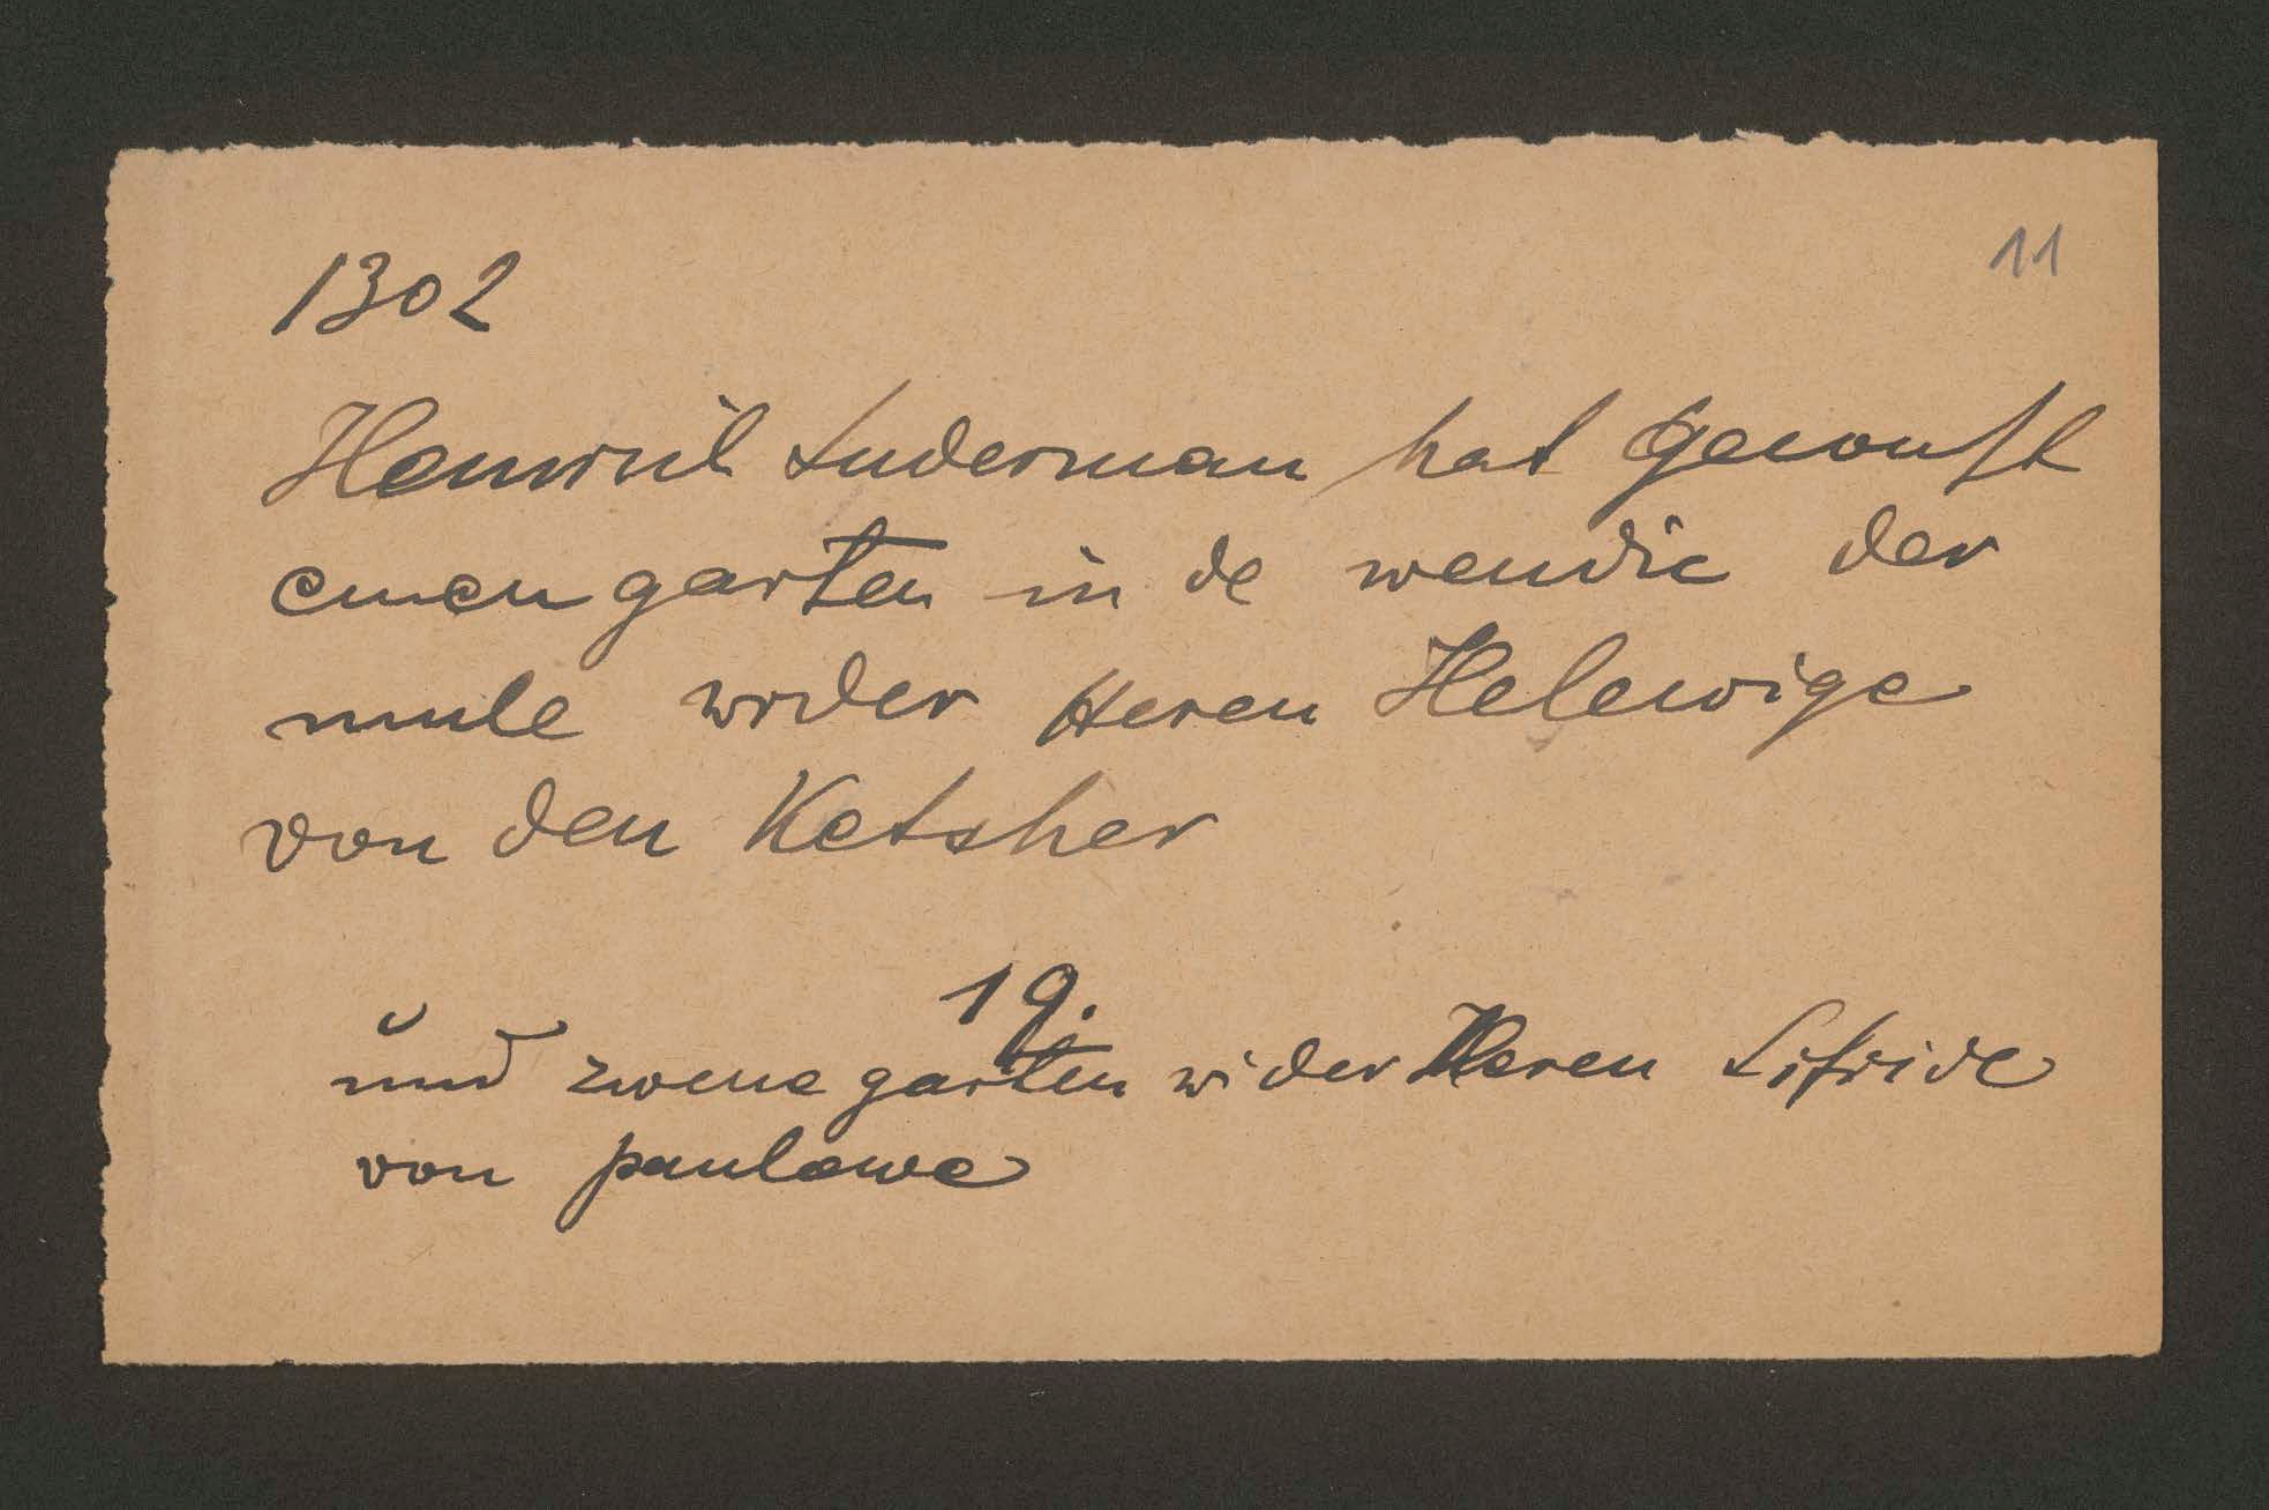 1302
11
Heinrich Luderman hat gecouft
einen garten in de wendic der
mule wider Heren Helewige
von den Ketsher
19.
und zwene garten wider Heren Sifride
von paulowe